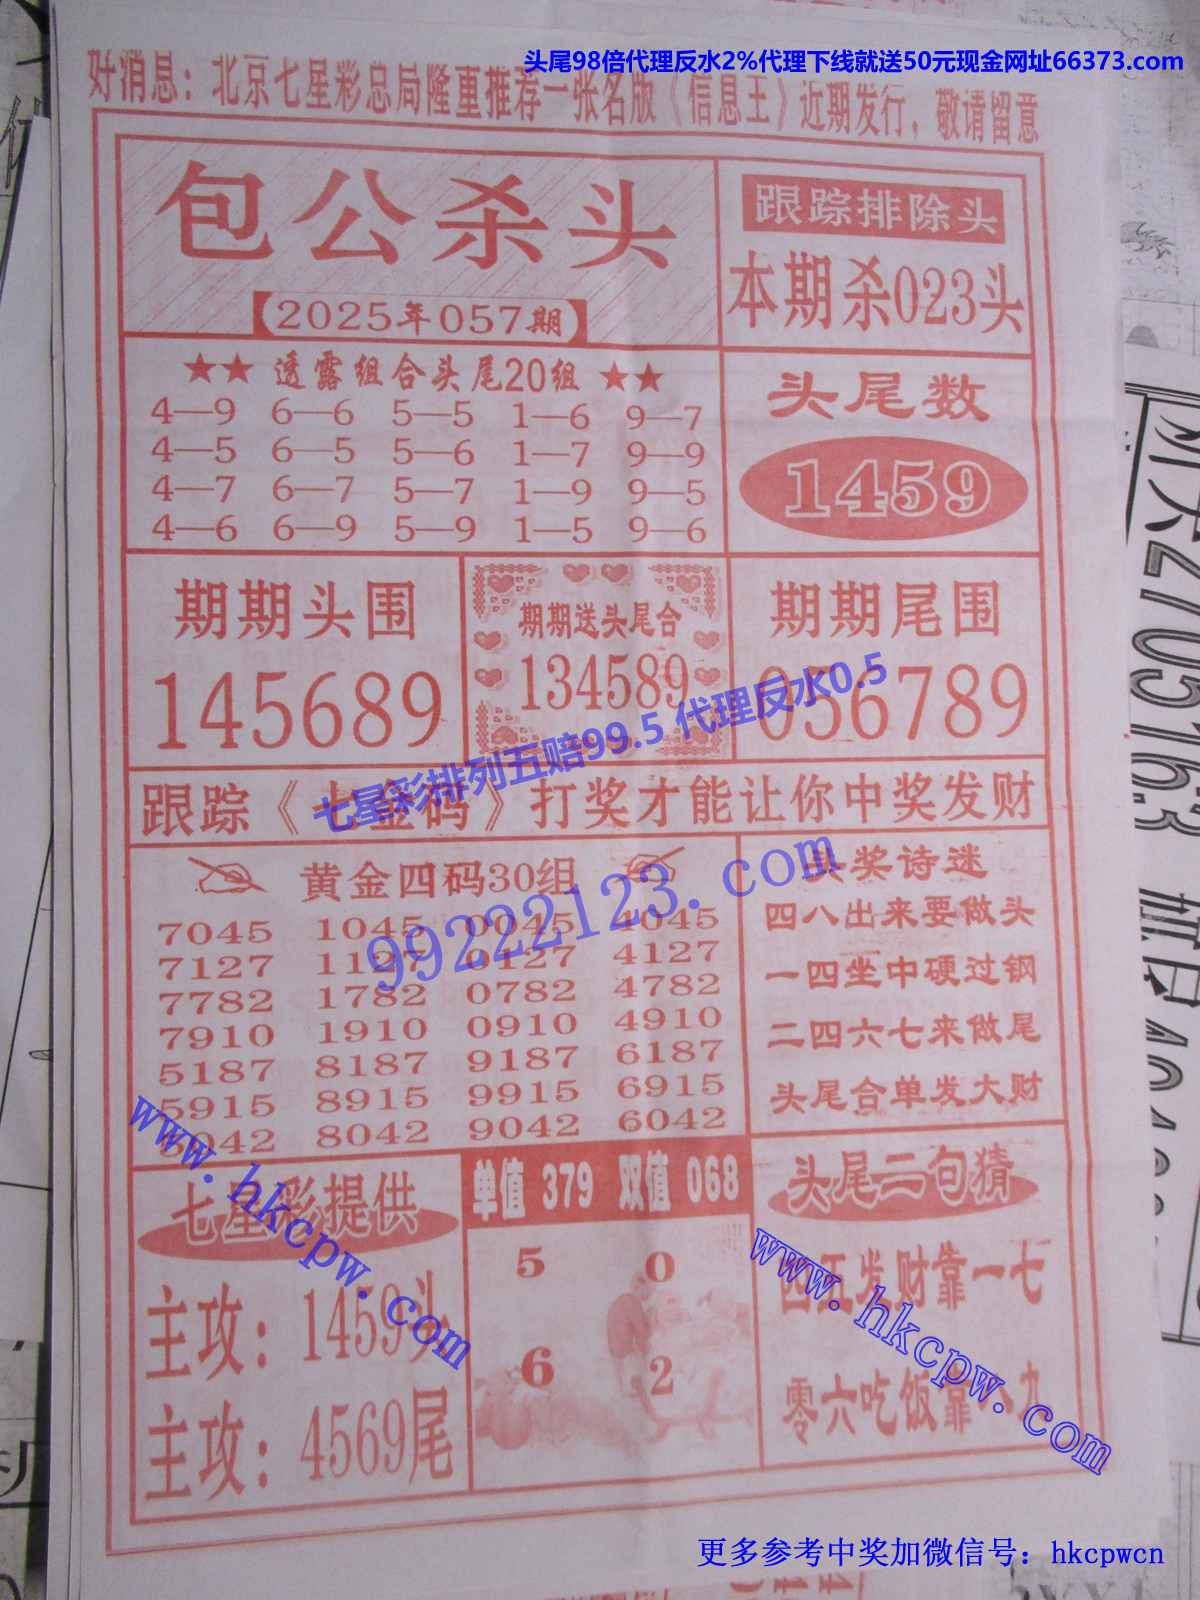 头尾98倍代理反水2%代理下线就送50元现金网址66373.com
好消息：北京七星彩总局隆重推荐一张名版《信息王》近期发行，敬请留意
包公杀头
【2025年057期】
跟踪排除头
本期杀023头
★★ 透露组合头尾20组 ★★
4—9 6—6 5—5 1—6 9—7
4—5 6—5 5—6 1—7 9—9
4—7 6—7 5—7 1—9 9—5
4—6 6—9 5—9 1—5 9—6
头尾数
1459
期期头围
145689
期期送头尾合
134589
期期尾围
056789
七星彩排列五赔99.5 代理反水0.5
跟踪《七金码》打奖才能让你中奖发财
黄金四码30组
7045 1045 0045 4045
7127 1127 0127 4127
7782 1782 0782 4782
7910 1910 0910 4910
5187 8187 9187 6187
5915 8915 9915 6915
5042 8042 9042 6042
99222123.com
头奖诗迷
四八出来要做头
一四坐中硬过钢
二四六七来做尾
头尾合单发大财
七星彩提供
主攻：1459头
主攻：4569尾
www.hkcpw.com
单值 379 双值 068
5 0
6 2
头尾二句猜
四五发财靠一七
零六吃饭靠八九
www.hkcpw.com
更多参考中奖加微信号：hkcpwcn